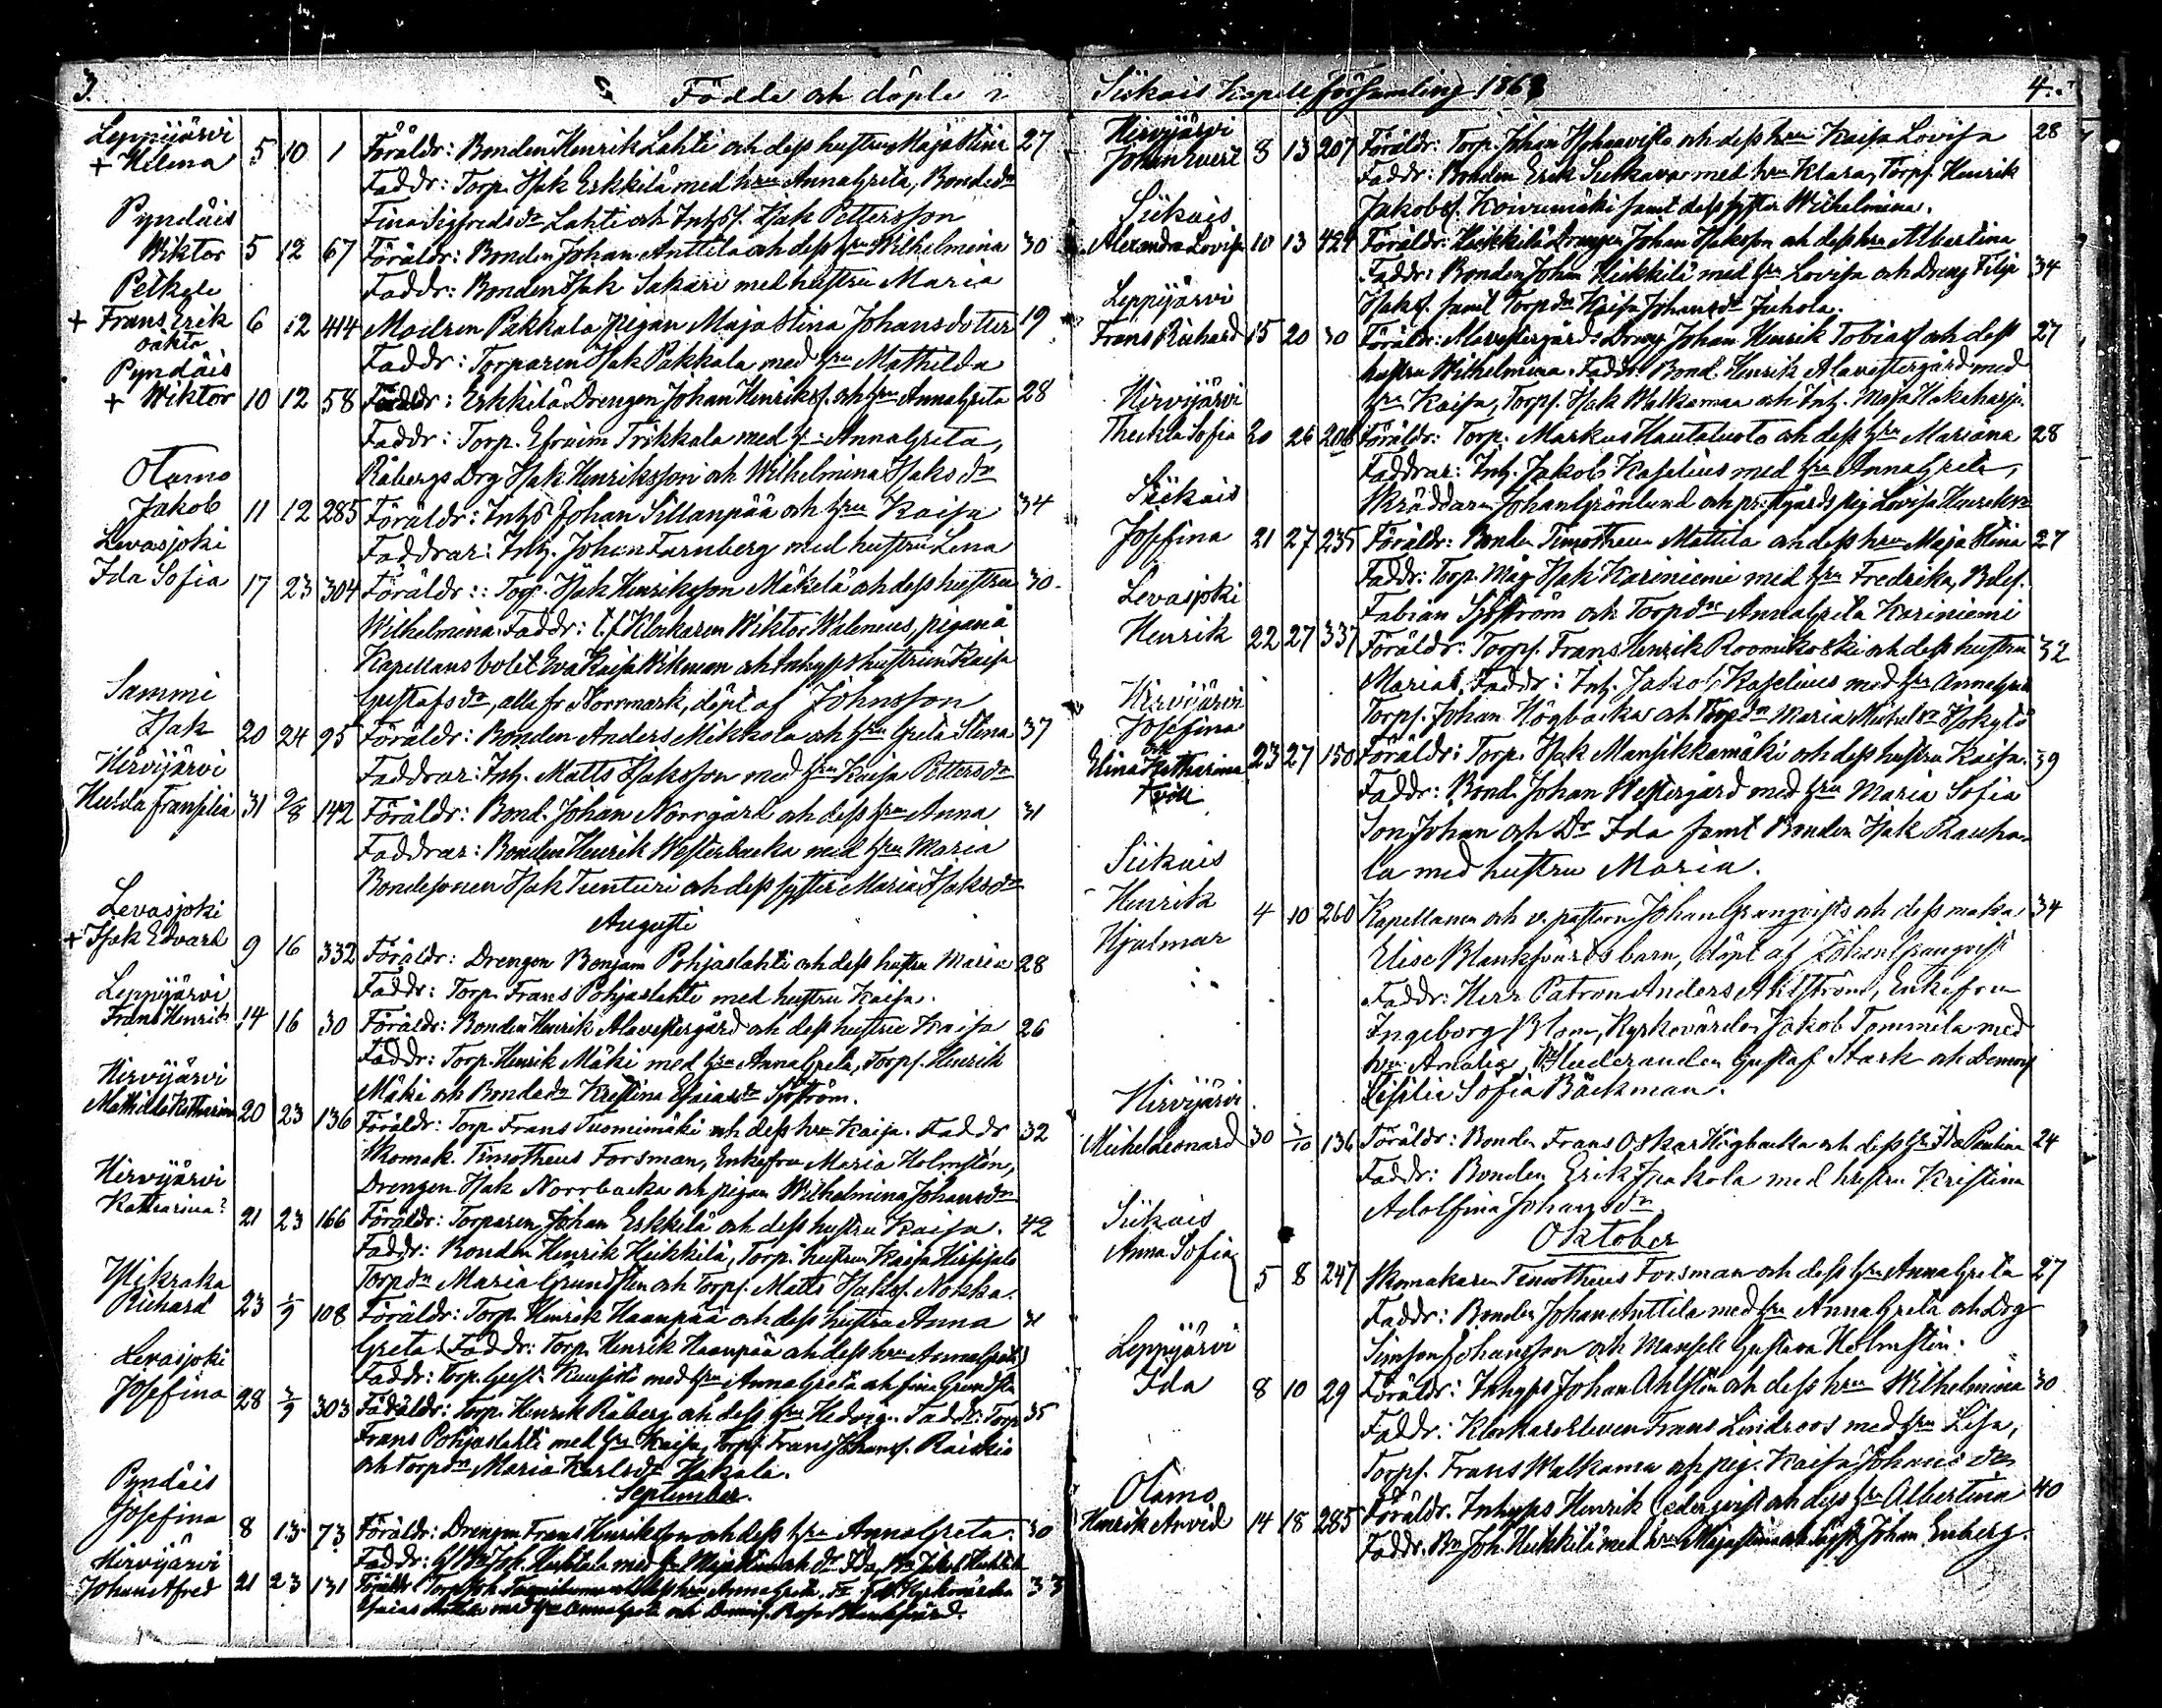 3.
Födda och döpte i
Leppijärvi
+ Helena 5 10 1 Föräldr: Bonden Henrik Lahti och dess hustru Maja Stina 27
Faddr: Torp. Isak Erkkilä med hru Anna Greta, Bondedr
Fina Sigfredsdr Lahti och Inhys. Isak Pettersson
Pyndäis
Wiktor 5 12 67 Föräldr: Bonden Johan Anttila och dess hru Wilhelmina 30
Faddr: Bonden Isak Sakari med hustru Maria
Petkele
+ Frans Erik 6 12 414 Modren Pakkala Pigan Maja Stina Johansdotter 19
oäkta
Faddr: Torparen Isak Pakkala med hru Mathilda
Pyndäis
+ Wiktor 10 12 58 Föräldr: Erkkilä Drengen Johan Henrikss. och hru Anna Greta 28
Faddr: Torp. Efraim Trikkala med h: Anna Greta,
Råbergs Drg Isak Henriksson och Wilhelmina Isaksdr
Otamo
Jakob 11 12 285 Föräldr: Inhys Johan Sillanpää och hru Kaisa 34
Faddrar: Inh. Johan Farnberg med hustru Lena
Levasjoki
Ida Sofia 17 23 304 Föräldr:: Torp. Isak Henriksson Mäkelä och dess hustru 30
Wilhelmina. Faddr: t.f. Klockaren Wiktor Walenius, pigan å
Kapellansbolet Eva Kaisa Wikman och Inhyses hustrun Kaisa
Gustafsdr, alla fr. Norrmark, döpt af Johnsson
Sammi
Isak 20 24 95 Föräldr: Bonden Anders Mikkola och hru Greta Stina 37
Faddrar: Inh. Matts Isaksson med hru Kaisa Pettersdr
Hirvijärvi
Hulda Fransilia 31 2/8 142 Föräldr: Bond. Johan Norrgård och dess hru Anna 31
Faddrar: Bonden Henrik Westerbacka med hru Maria
Bondesonen Isak Tunturi och dess syster Maria Isaksdr
Augusti
Levasjoki
+ Isak Edvard 9 16 332 Föräldr: Drengen Benjam Pohjaslahti och dess hustru Maria 28
Faddr: Torp. Frans Pohjaslahti med hustru Kaisa.
Leppijärvi
Frans Henrik 14 16 30 Föräldr: Bonden Henrik Alavestergård och dess hustru Kaisa 26
Faddr: Torp. Henrik Mäki med hru Anna Greta, Torps. Henrik
Mäki och Bondedr Kristina Esaiasdr Sjöström.
Hirvijärvi
Mathilda Katharina 20 23 136 Föräldr: Torp. Frans Tuomimäki och dess hru Kaisa. Faddr 32
Skomak. Timotheus Forsman, Enkefru Maria Holmstén,
Drengen Isak Norrbacka och pigan Wilhelmina Johansdr
Hirvijärvi
Katharina 21 23 166 Föräldr: Torparen Johan Erkkilä och dess hustru Kaisa. 42
Faddr: Bonden Henrik Heikkilä, Torp. hustrun Kaisa
Torpdr Maria Grundstén och Torps. Matts Isakss. Nokka.
Richard 23 1/9 108 Föräldr: Torp. Henrik Haanpää och dess hustru Anna 31
Greta (Faddr: Torp. Henrik Haanpää och dess hru Anna Greta)
Faddr: Torp. Gust. Kuusisto med hru Anna Greta och Fina Grundstén
Levasjoki
Josefina 28 3/9 303 Föräldr: Torp. Henrik Råberg och dess hru Hedvig. Faddr: Torp 35
Frans Pohjaslahti med hru Kaisa, Torps. Frans Johanss. Raiskio
och Torpdr Maria Karlsdr Hakala.
September.
Pyndäis
Josefina 8 13 73 Föräldr: Drengen Frans Henriksson och dess hru Anna Greta. 30
Hirvijärvi
Johan Alfred 21 23 131 33
Siikais Kapell församling 1868
4.
Hirvijärvi
Johan Evert 8 13 207 Föräldr: Torp. Johan och dess hru Kaisa Lovisa 28
Faddr: Bonden Erik Suikava med hru Klara, Torps. Henrik
Jakobss. Koivumäki samt dess syster Wilhelmina.
Siikais
Alexandra Lovisa 10 13 424 Föräldr: Heikkilä Drengen Johan Isaksson och dess hru Albertina
Faddr: Bonden Johan Heikkilä med hru Lovisa och Dreng Filip 34
Isakss. samt Torpdr Kaisa Johansdr Juhola.
Leppijärvi
Frans Richard 15 20 30 Föräldr: Alavestergårds Dreng Johan Henrik Tobiass och dess 27
hustru Wilhelmina. Faddr: Bond. Henrik Alavestergård med
hru Kaisa, Torps. Isak Walkamaa och Inh. Maja Hakaharju.
Hirvijärvi
Theckla Sofia 20 26 206 Föräldr: Torp. Markus Hautaluoto och dess hru Mariana 28
Faddrar: Inh. Jakob Kaselius med hru Anna Greta,
Skräddaren Johan Grönlund och prestgårds pig. Lovisa Henriksdr
Siikais
Josefina 21 27 235 Föräldr: Bonden Timotheus Mattila och dess hru Maja Stina 27
Faddr: Torp. Måg Isak Kariniemi med hru Fredrika, Bdes.
Fabian Sjöström och Torpdr Anna Greta Kariniemi
Levasjoki
Henrik 22 27 337 Föräldr: Torps. Frans Henrik Roomikoski och dess hustru 32
Maria. Faddr: Inh. Jakob Kaselius med hru Anna Greta
Torps. Johan Högbacka och Torpdr Maria Michelsdr
Hirvijärvi
Josefina
och
Elina Katharina 23 27 150 Föräldr: Torp. Isak Mansikkamäki och dess hustru Kaisa. 39
Tvill
Faddr: Bond. Johan Westergård med hru Maria Sofia
Son Johan och Dr Ida samt Bonden Isak Rauha-
la med hustru Maria.
Siikais
Henrik 4 10 260 Kapellanen och v. pastorn Johan Granqvists och dess maka 34
Hjalmar
Elise Blankfvärds barn, döpt af Johan Granqvist
Faddr: Herr Patron Anders Ahlström, Enkefru
Ingeborg Blom, Kyrkovärden Jakob Tommila med
hru Amalia, Studeranden Gustaf Stark och Demois
Cisilie Sofia Bäckman.
Hirvijärvi
Michel Leonard 30 3/10 136 Föräldr: Bonden Frans Oskar Högbacka och dess hru Ida Paulina 24
Faddr: Bonden Erik Jaakola med hustru Kristina
Adolfina Johansdr.
Oktober
Siikais
Anna Sofia 5 8 247 Skomakaren Timotheus Forsman och dess hru Anna Greta 27
Faddr: Bonden Johan Anttila med hru Anna Greta och Drg
Simson Johansson och Mamsell Gustava Holmstén.
Leppijärvi
Ida 8 10 29 Föräldr: Inhyses Johan Ahlstén och dess hru Wilhelmina 30
Faddr: Klockar Eleven Frans Lindroos med hru Lisa,
Torps. Frans Walkama och pig. Kaisa Johansdr
Otamo
Henrik Arvid 14 18 285 Föräldr. Inhyses Henrik Cederqvist och dess hru Albertina 40
Faddr. Bn Joh. Heikkilä med hru Maja Stina och Johan Enberg.